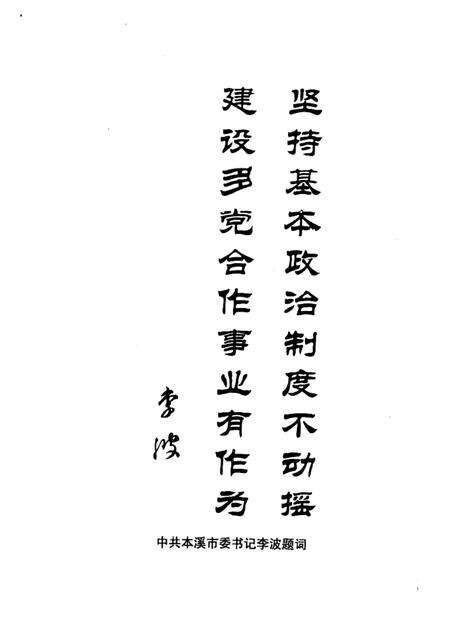 坚持基本政治制度不动摇
建设多党合作事业有作为
李波
中共本溪市委书记李波题词